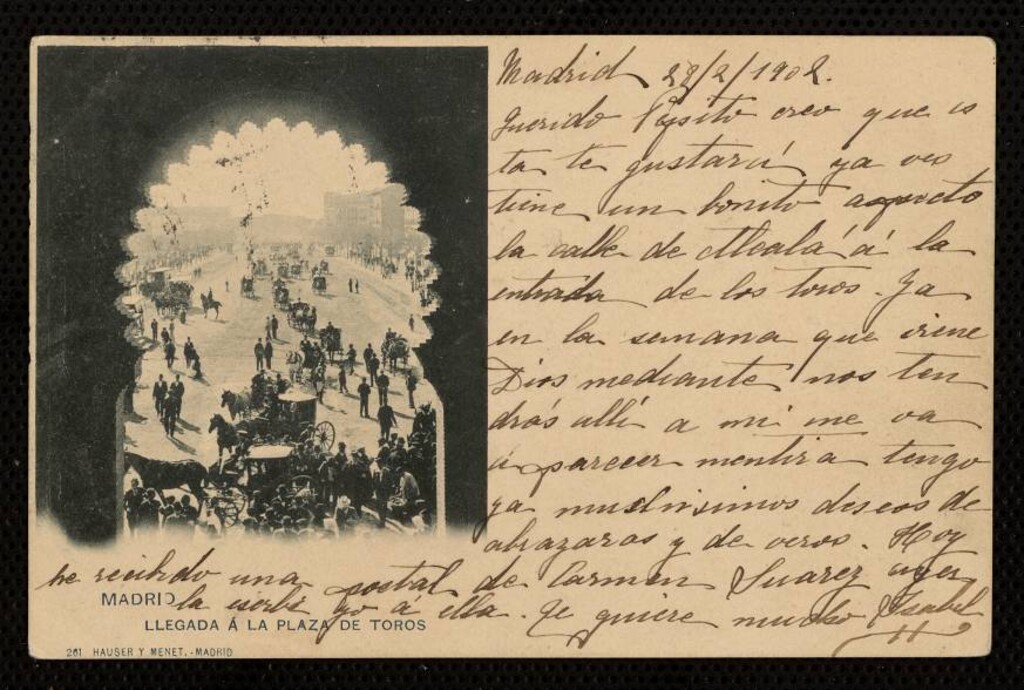 Madrid 28/2/1902.
Querido Pepito creo que es
ta te gustará ya ves
tiene un bonito aspecto
la calle de Alcalá á la
entrada de los toros. Ya
en la semana que viene
Dios mediante nos ten
drás allí a mi me va
á parecer mentira tengo
ya muchisimos deseos de
abrazaros y de veros. Hoy
he recibido una postal de Carmen Suarez ayer
la escribi yo á ella. Te quiere mucho Isabel
MADRID
LLEGADA Á LA PLAZA DE TOROS
261 HAUSER Y MENET.-MADRID